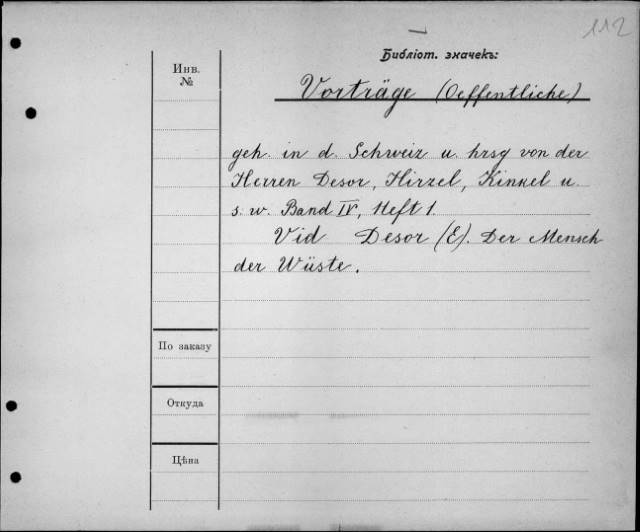 112
Библіот. значекъ:
Инв.
№
Vorträge (Oeffentliche)
geh. in d. Schweiz u. hrsg von der
Herren Desor, Hirzel, Kinkel u.
s. w. Band IV, Heft 1.
Vid Desor (E). Der Mensch
der Wüste.
По заказу
Откуда
Цѣна